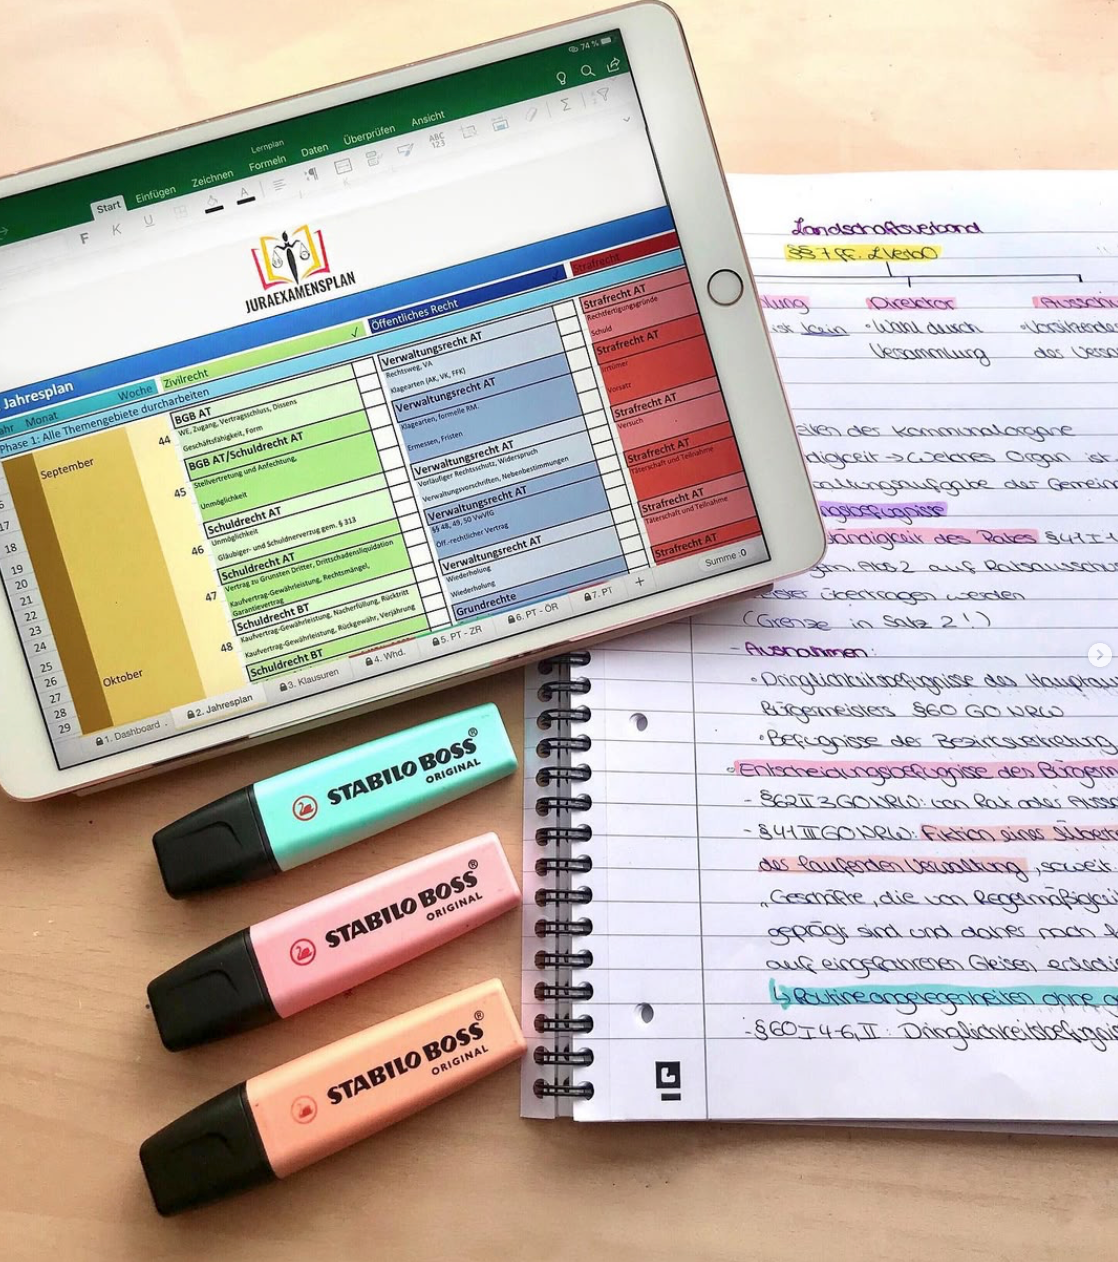 74 %
Lernplan
Start Einfügen Zeichnen Formeln Daten Überprüfen Ansicht
F K U A ABC 123
JURAEXAMENSPLAN
Jahresplan
Monat Woche Zivilrecht ✓ Öffentliches Recht Strafrecht
Phase 1: Alle Themengebiete durcharbeiten
September
Oktober
44
BGB AT
WE, Zugang, Vertragsschluss, Dissens
Geschäftsfähigkeit, Form
45
BGB AT/Schuldrecht AT
Stellvertretung und Anfechtung,
Unmöglichkeit
46
Schuldrecht AT
Unmöglichkeit
Gläubiger- und Schuldnerverzug gem. § 313
47
Schuldrecht AT
Vertrag zu Gunsten Dritter, Drittschadensliquidation
Kaufvertrag-Gewährleistung, Rechtsmängel,
Garantievertrag
48
Schuldrecht BT
Kaufvertrag-Gewährleistung, Nacherfüllung, Rücktritt
Kaufvertrag-Gewährleistung, Rückgewähr, Verjährung
Schuldrecht BT
Verwaltungsrecht AT
Rechtsweg, VA
Klagearten (AK, VK, FFK)
Verwaltungsrecht AT
Klagearten, formelle RM.
Ermessen, Fristen
Verwaltungsrecht AT
Vorläufiger Rechtsschutz, Widerspruch
Verwaltungsvorschriften, Nebenbestimmungen
Verwaltungsrecht AT
§§ 48, 49, 50 VwVfG
Öff.-rechtlicher Vertrag
Verwaltungsrecht AT
Wiederholung
Wiederholung
Grundrechte
Strafrecht AT
Rechtfertigungsgründe
Schuld
Strafrecht AT
Irrtümer
Vorsatz
Strafrecht AT
Versuch
Strafrecht AT
Täterschaft und Teilnahme
Strafrecht AT
Täterschaft und Teilnahme
Strafrecht AT
17
18
19
20
21
22
23
24
25
26
27
28
29
1. Dashboard
2. Jahresplan
3. Klausuren
4. Whd.
5. PT - ZR
6. PT - ÖR
7. PT
+
Summe :0
STABILO BOSS®
ORIGINAL
STABILO BOSS®
ORIGINAL
STABILO BOSS®
ORIGINAL
Landschaftsverband
§§ 7 ff. LVerbO
Direktor
ist kein • Wahl durch
Versammlung
der Kommunalorgane
Organ ist
der Gemein
ngsbefugnisse
ändigkeit des Rates § 41 I
Abs 2 auf Ratsausschu
übertragen werden
(Grenze in Satz 2!)
- Ausnahmen:
• Dringlichkeitsbefugnisse des Hauptau
Bürgermeisters § 60 GO NRW
• Befugnisse der Bezirksvertretung
• Entscheidungsbefugnisse des Bürger
- § 62 II 3 GO NRW: von Rat oder Auss
- § 41 III GO NRW: Fiktion einer Übert
der laufenden Verwaltung, soweit
„Geschäfte, die von Regelmäßigkei
geprägt sind und daher nach
auf eingefahrenen Gleisen erledi
↳ Routineangelegenheiten ohne
- § 60 I 4-6, II: Dringlichkeitsbefugni